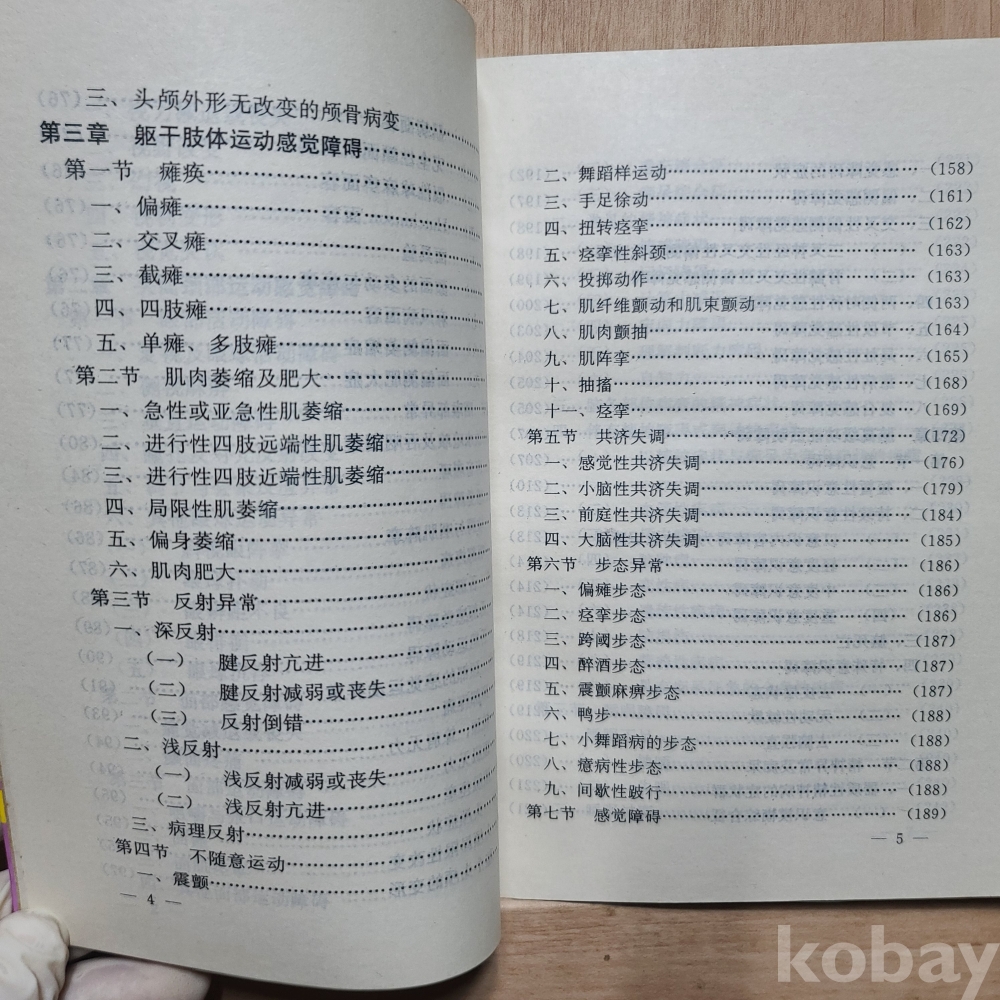 三、头颅外形无改变的颅骨病变……
第三章 躯干肢体运动感觉障碍……
第一节 瘫痪
一、偏瘫……
二、交叉瘫……
三、截瘫……
四、四肢瘫……
五、单瘫、多肢瘫……
第二节 肌肉萎缩及肥大……
一、急性或亚急性肌萎缩……
二、进行性四肢远端性肌萎缩……
三、进行性四肢近端性肌萎缩……
四、局限性肌萎缩……
五、偏身萎缩……
六、肌肉肥大……
第三节 反射异常……
一、深反射……
（一） 腱反射亢进……
（二） 腱反射减弱或丧失……
（三） 反射倒错……
二、浅反射……
（一） 浅反射减弱或丧失……
（二） 浅反射亢进……
三、病理反射……
第四节 不随意运动……
一、震颤……
— 4 —
二、舞蹈样运动……（158）
三、手足徐动……（161）
四、扭转痉挛……（162）
五、痉挛性斜颈……（163）
六、投掷动作……（163）
七、肌纤维颤动和肌束颤动……（163）
八、肌肉颤抽……（164）
九、肌阵挛……（165）
十、抽搐……（168）
十一、痉挛……（169）
第五节 共济失调……（172）
一、感觉性共济失调……（176）
二、小脑性共济失调……（179）
三、前庭性共济失调……（184）
四、大脑性共济失调……（185）
第六节 步态异常……（186）
一、偏瘫步态……（186）
二、痉挛步态……（186）
三、跨阈步态……（187）
四、醉酒步态……（187）
五、震颤麻痹步态……（187）
六、鸭步……（188）
七、小舞蹈病的步态……（188）
八、癔病性步态……（188）
九、间歇性跛行……（188）
第七节 感觉障碍……（189）
— 5 —
kobay